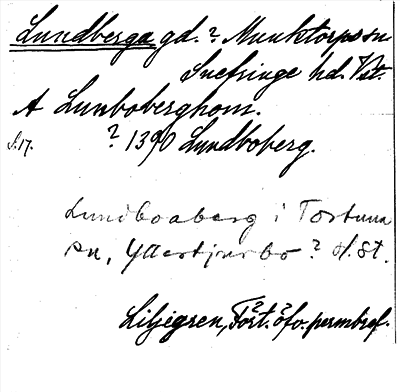 Lundberga gd. ? Munktorps sn
Snefringe hd. Vst.
A Lunboberghom.
S. 17. ? 1390 Lundboberg.
Lundboaberg i Tortuna
sn, Yttertjurbo ? d. st.
Liljegren, Fört. öfv. permbref.